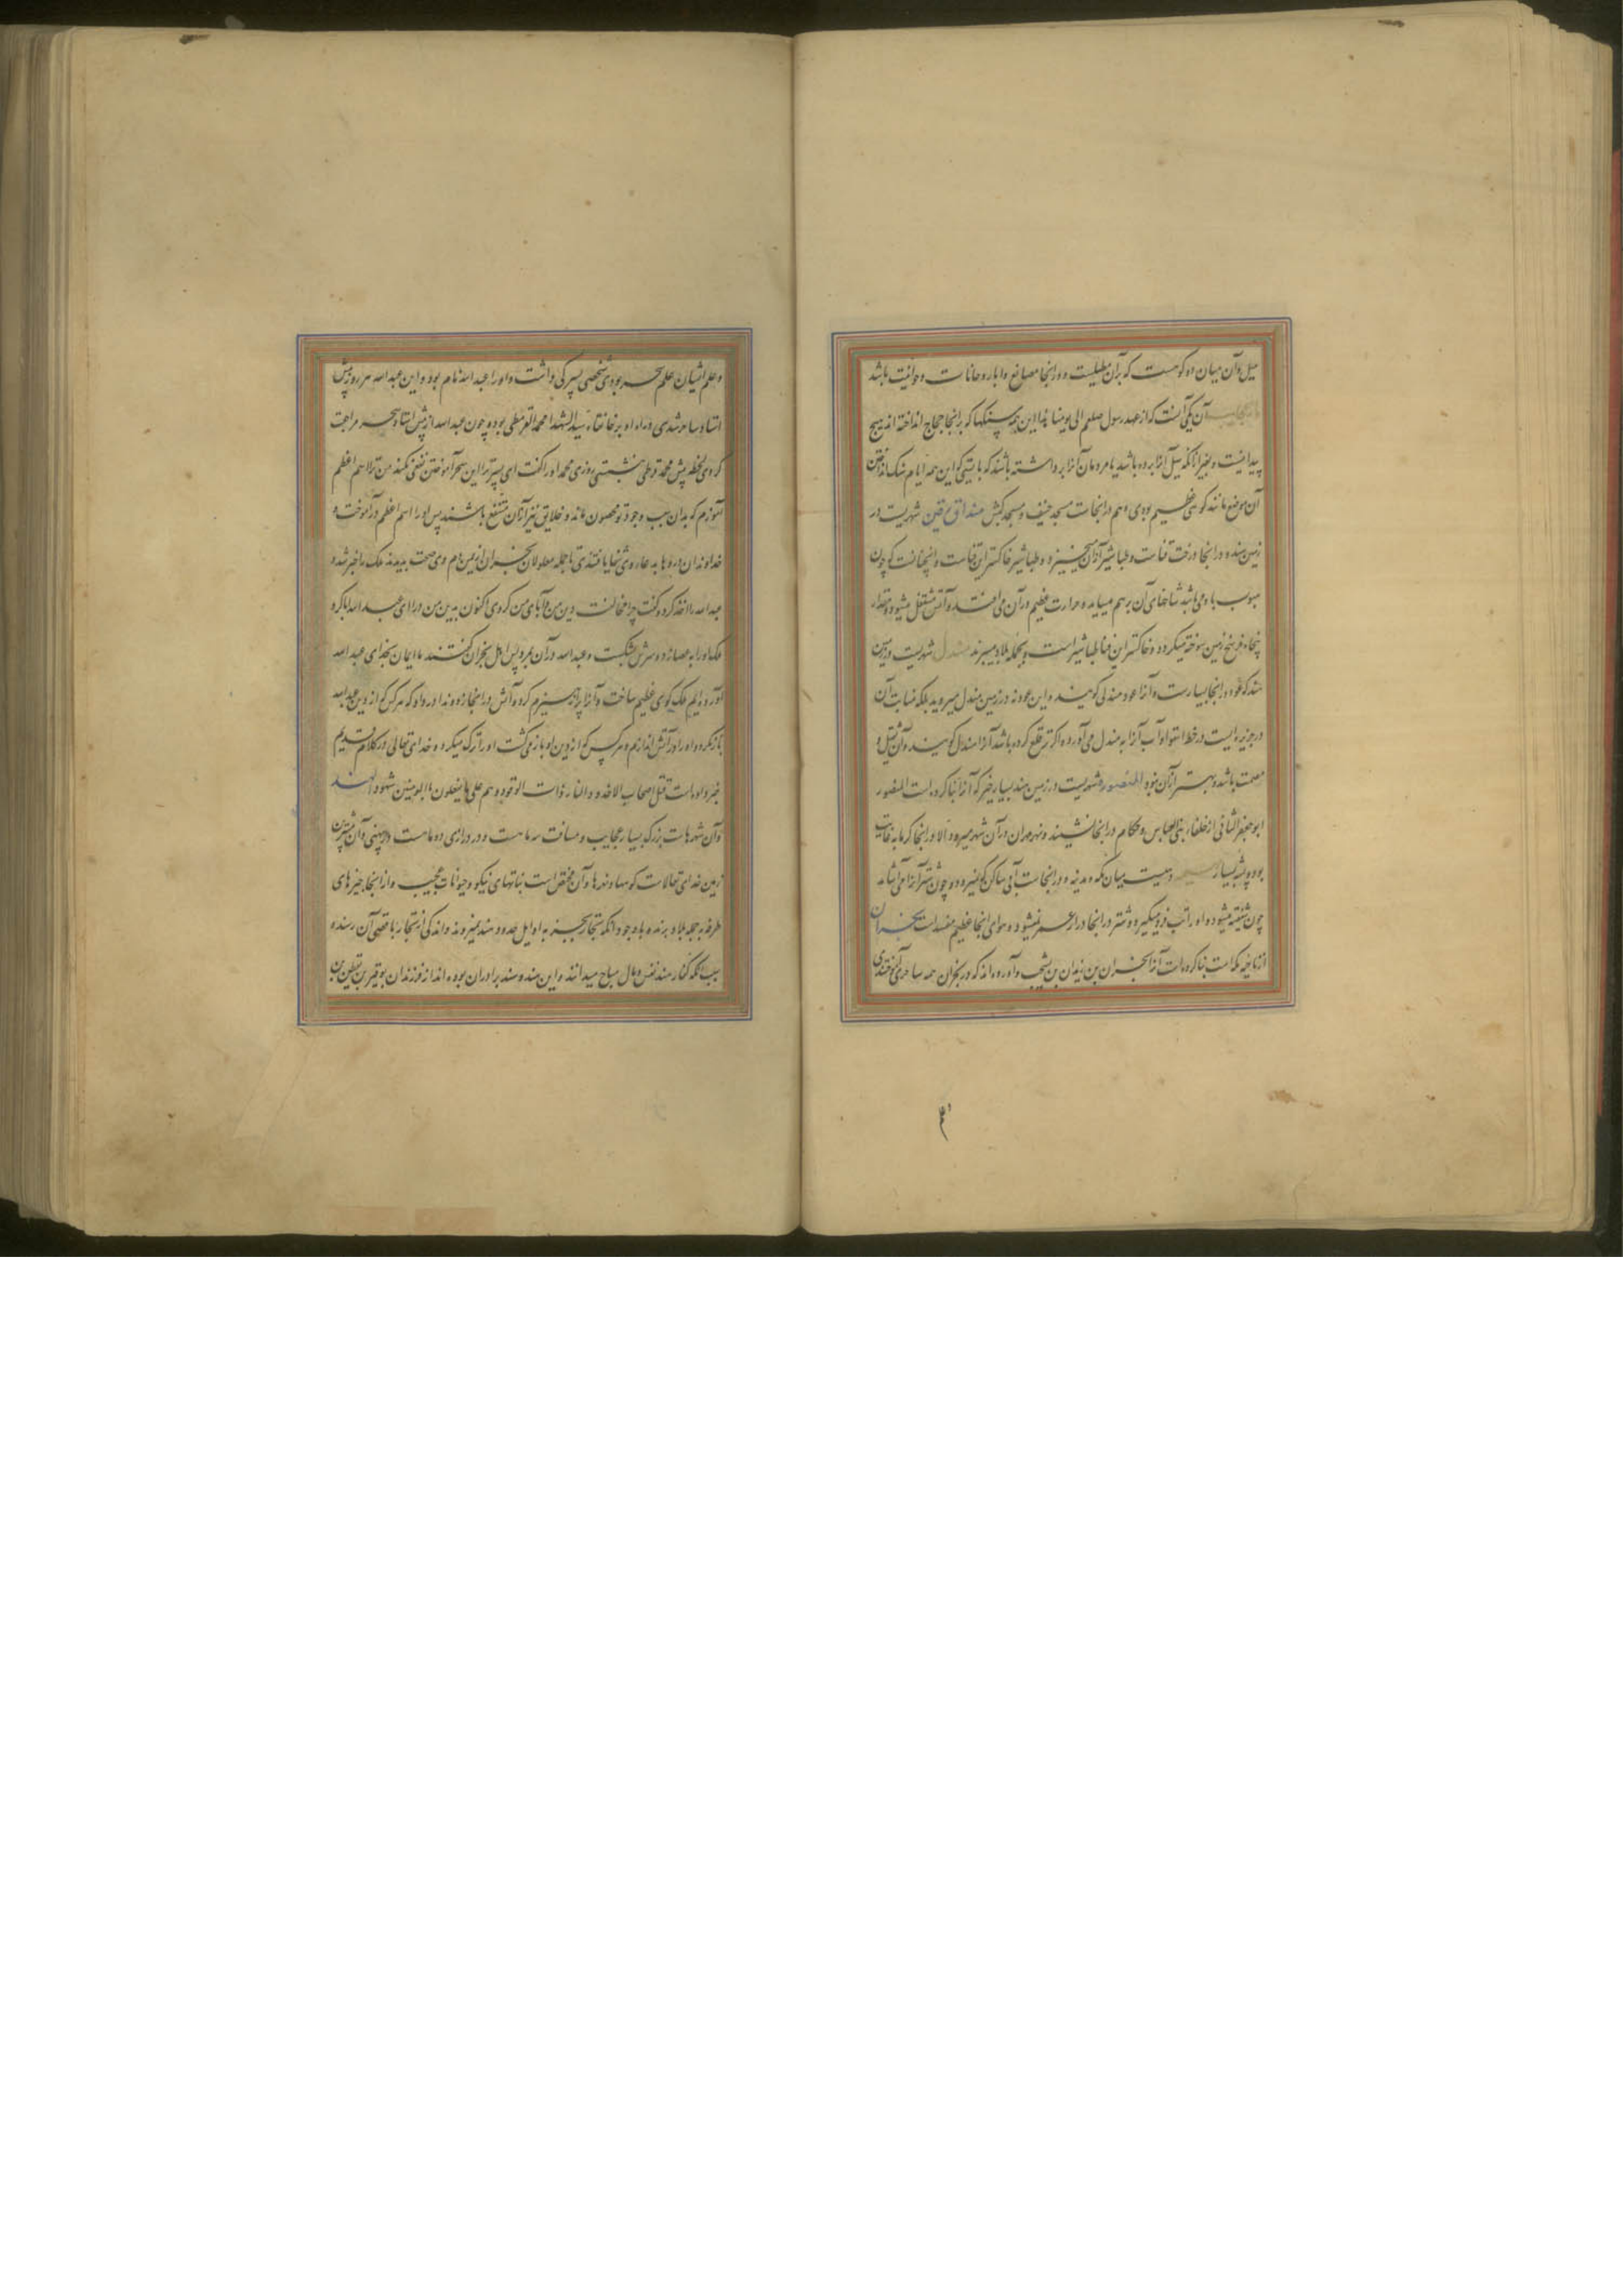 میل و آن میان دو کوهست که بر آن مطلیست و در انجا مصانع و ابار و خانات و حوانیت باشد
آن یکی آنست که از عهد رسول صلعم الی یومنا هذا این همه سنگها که در انجا حجاج انداخته اند هیچ
پیدا نیست و بغیر از انکه سیل آنرا برده باشد یا مردمان آنرا برداشته باشند که بایستی که این همه ایام سنک انداختن
آن موضع مانند کوهی عظیم بودی و هم در انجاست مسجد خیف و مسجد کبش شهریست در
زمین هند و در انجا درخت قناست و طباشیر از آن میخیزد و طباشیر خاکستر این قناست و انچنانست که چون
هبوب باد می باشد شاخهای آن بر هم میساید و حرارت عظیم در آن می افتد و آتش مشتعل میشود و مقدار
پنجاه فرسخ زمین سوخته میکردد و خاکستر این قنا طباشیر است و بجمله بلاد میبرند مندل شهریست در زمین
هند که عود در انجا بسیارست و آنرا عود مندلی کویند و این عود نه در زمین مندل میروید بلکه منابت آن
در جزیره ایست در خط استوا و آب آنرا به مندل می آورد و اکر تر قلع کرده باشد آنرا مندل کویند و آن ثقیل و
مصمت باشد و بهتر از آن نبود المنصوره شهریست در زمین هند بسیار خیر که آنرا بنا کرده است المنصور
ابو جعفر الثانی از خلفاء بنی العباس و حکام در انجا نشینند و نهر مهران در آن شهر میرود الا در انجا کرما به غایت
بود و پشه بسیار دهیست میان مکه و مدینه و در انجاست آبی ساکن که نمیرود و چون شتر آنرا می آشامد
چون شیفته میشود و او را تب فرو میکیرد و شتر در انجا دراز عمر نمیشود و هوای انجا عظیم مفسدست نجران
از ناحیه مکه است بنا کرده است آنرا نجران بن زیدان بن یشجب و آورده اند که در نجران همه ساحری آموختندی
و علم ایشان علم سحر بودی شخصی پسرکی داشت و او را عبد الله نام بود و این عبد الله هر روز پیش
استاد ساحر شدی در راه او بر خانقاه سید الشهدا محمد القرمطی بود و چون عبد الله از پیش استاد سحر مراجعت
کردی لحظه پیش محمد قرطی بنشستی روزی محمد او را کفت ای پسر ترا این سحر آموختن نفعی نکند من ترا اسم اعظم
آموزم که بدان سبب وجود تو مصون ماند و خلایق نیز از آن منتفع باشند پس او را اسم اعظم در آموخت و
خداوندان دردها به عاء وی شفا یافتندی تا جمله معلولان نجران از یمن دم وی صحت بدیدند ملک را خبر شد و
عبد الله را اخذ کرد و کفت چرا مخالفت دین من و آبای من کردی اکنون بدین من در ای عبد الله ابا کرد
ملک او را به عصا زد و سرش بشکست و عبد الله در آن بمرد پس اهل نجران کفتند ما ایمان بخدای عبد الله
آورده ایم ملک کوی عظیم ساخت و آنرا پر از هیزم کرد و آتش در انجا زد و ندا در داد که هر کس که از دین عبد الله
باز نکردد او را در آتش اندازم و هر کس که از دین او باز می کشت او را ترک میکرد و خدای تعالی در کلام قدیم
خبر داده است قتل اصحاب الاخدود النار ذات الوقود و هم علی ما یفعلون بالمومنین شهود الهند
و آن شهرهاست بزرک بسیار عجایب و مسافت سه ماهست و در درازی دو ماهست در پهنی و آن بیشترین
زمین خدای تعالاست کوهها و نهرها و آن مختص است بنباتهای نیکو و حیوانات عجیب و از انجا چیزهای
طرفه بجمله بلاد برند و با وجود انکه تجار بجز به اوایل حدود هند نمیروند و اندکی از تجار باقصی آن رسند و
سبب انکه کفار هند نفس و مال مباح میدانند و این هند و سند برادران بوده اند از فرزندان بوقیر بن یقطن بن
۴۰